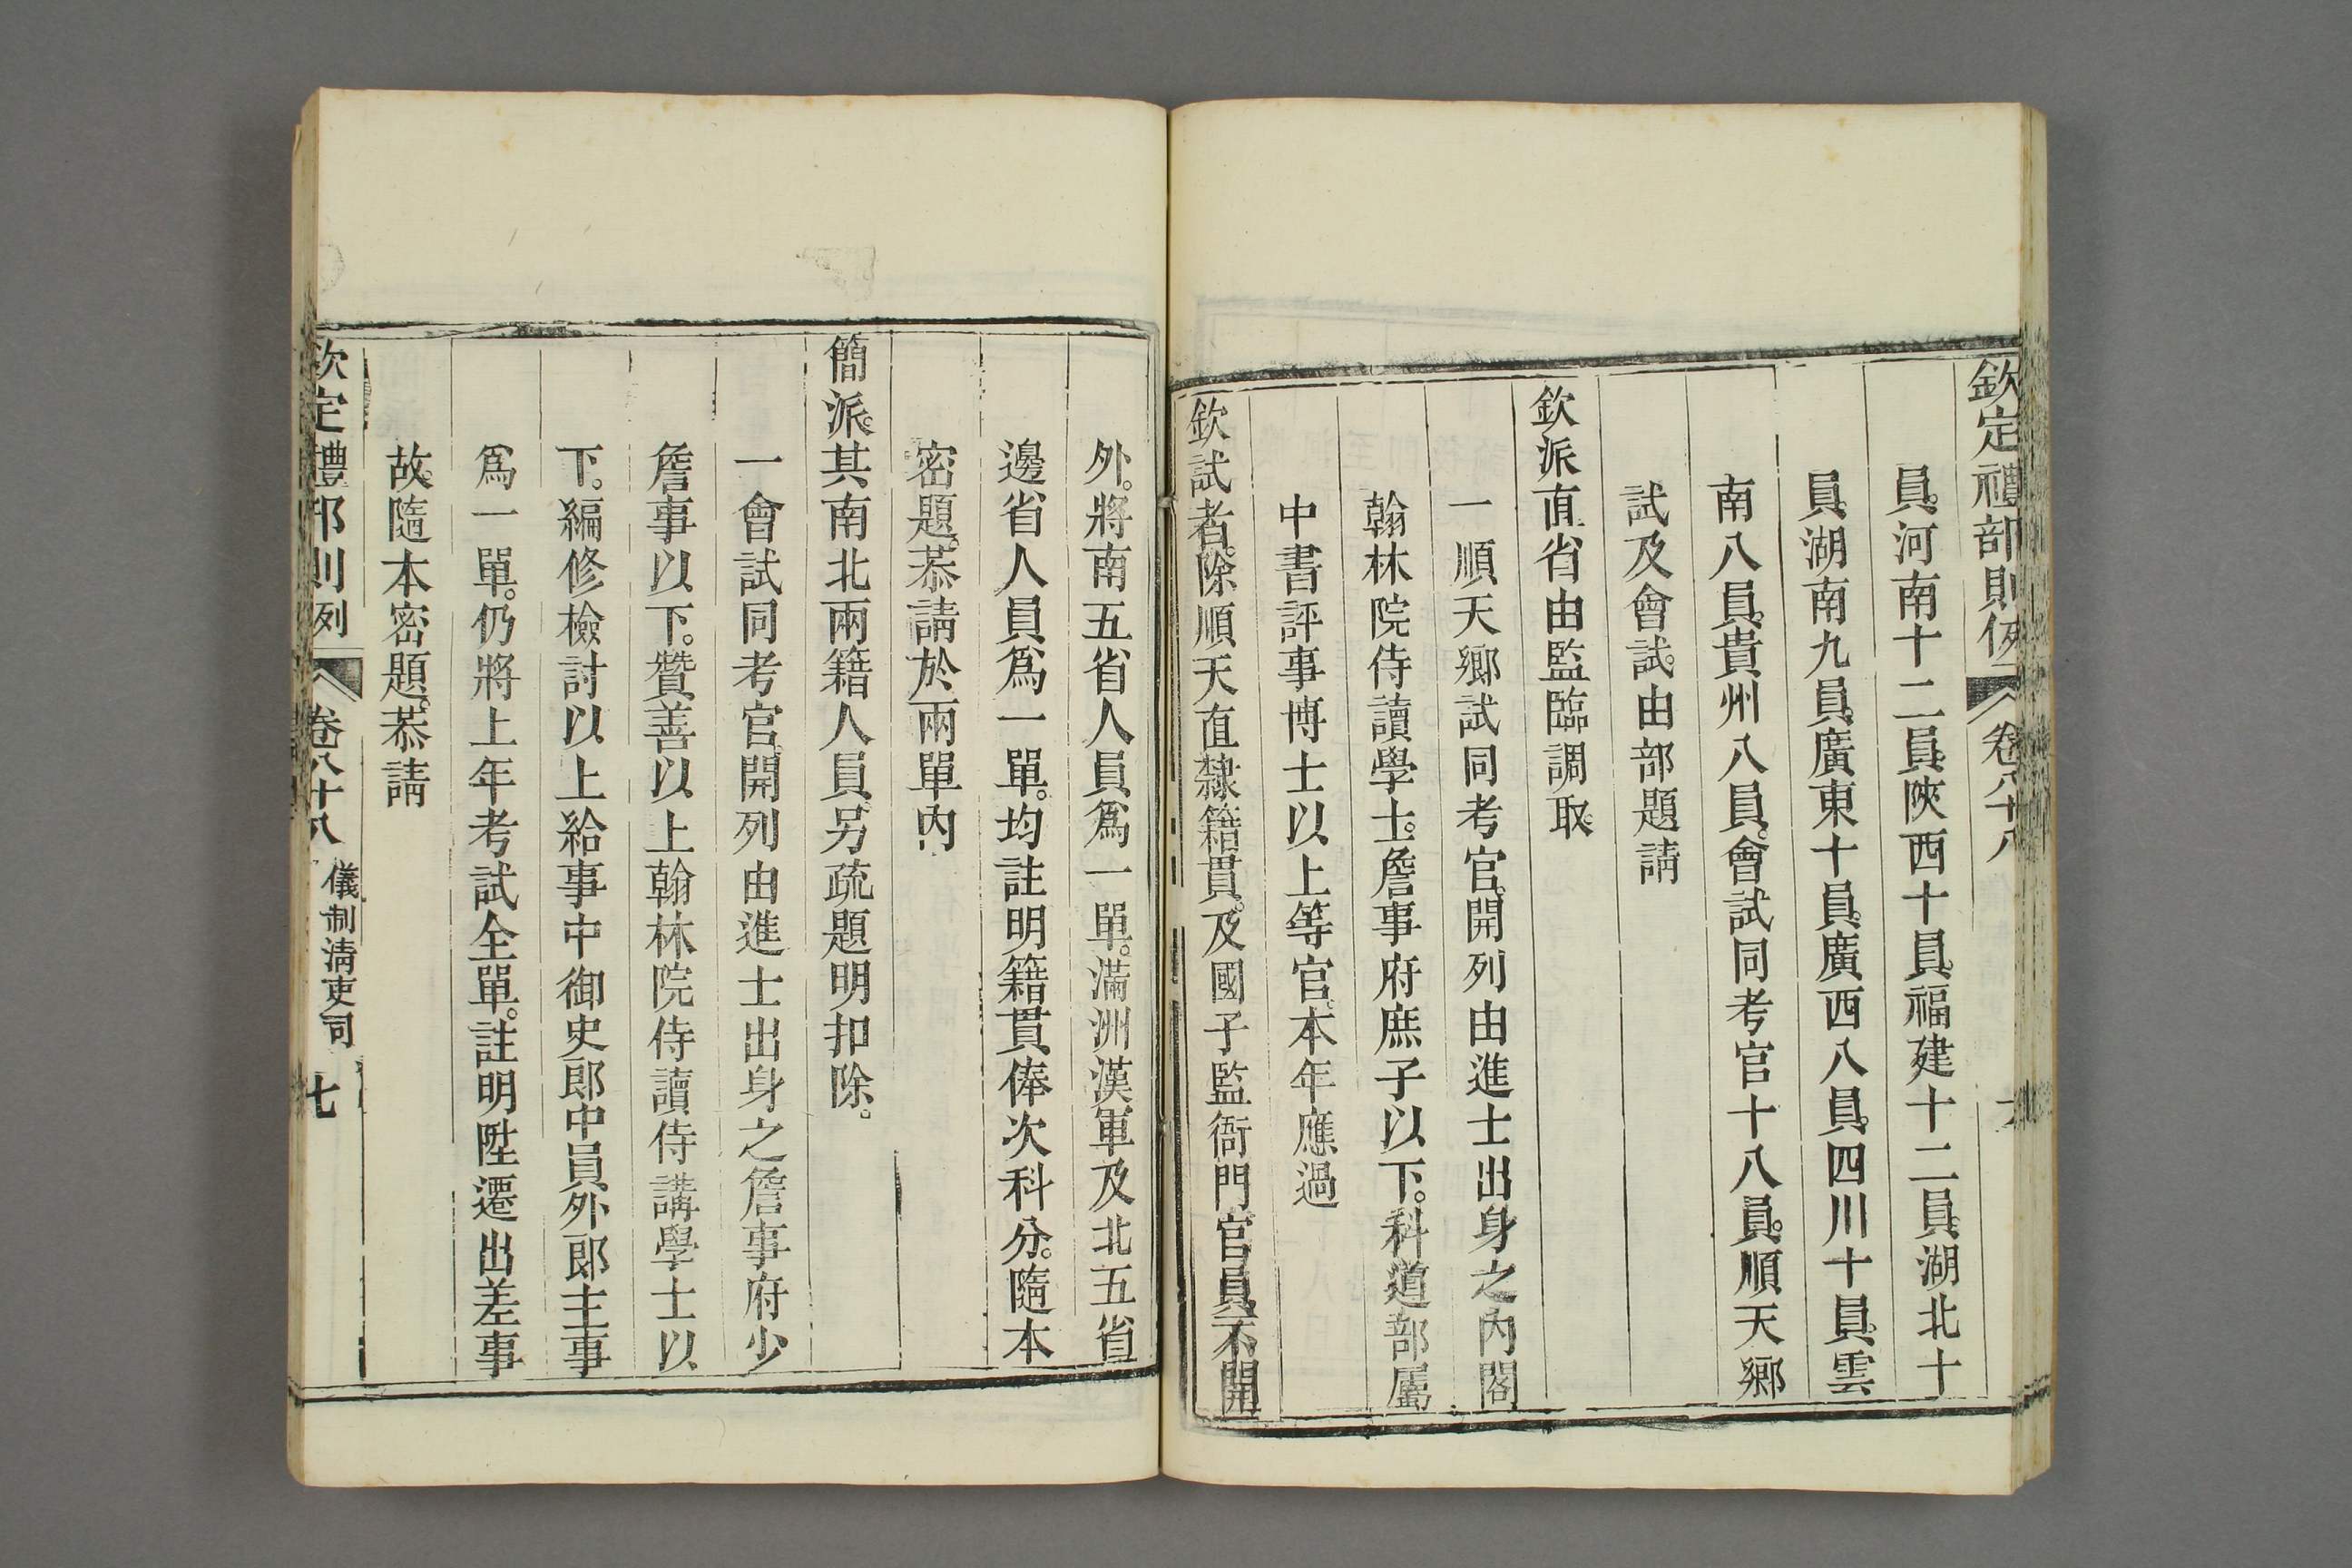 欽定禮部則例 卷八十八
員。河南十二員。陝西十員。福建十二員。湖北十
員。湖南九員。廣東十員。廣西八員。四川十員。雲
南八員。貴州八員。會試同考官十八員。順天鄉
試及會試。由部題請
欽派。直省由監臨調取。
一順天鄉試同考官。開列由進士出身之內閣
翰林院侍讀學士。詹事府庶子以下。科道部屬
中書評事博士以上等官。本年應過
欽試者。除順天直隸籍貫。及國子監衙門官員不開
外。將南五省人員爲一單。滿洲漢軍及北五省
邊省人員爲一單。均註明籍貫俸次科分。隨本
密題。恭請於兩單內
簡派。其南北兩籍人員。另疏題明扣除。
一會試同考官。開列由進士出身之詹事府少
詹事以下。贊善以上翰林院侍讀侍講學士以
下。編修檢討以上給事中御史郎中員外郎主事
爲一單。仍將上年考試全單。註明陞遷出差事
故。隨本密題。恭請
欽定禮部則例 卷八十八 儀制清吏司 七